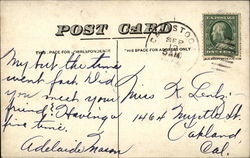 POST CARD
THIS SPACE FOR CORRESPONDENCE
THIS SPACE FOR ADDRESS ONLY
STOC
SEP
My but the time
went fast. Did
you meet your
friend? Having a
fine time.
Adelaide Mason
Miss K. Lentz
1464 Myrtle St.
Oakland
Cal.